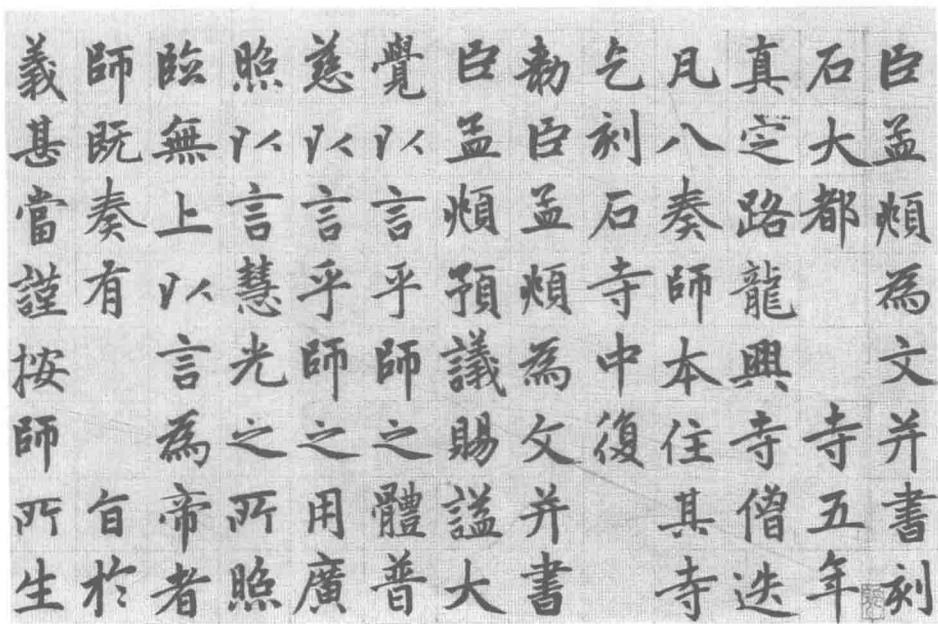 臣孟頫為文并書刻
石大都　寺五年
真定路龍興寺僧迭
凡八奏師本住其寺
乞刻石寺中復
勑臣孟頫為文并書
臣孟頫預議賜謚大
覺以言乎師之體普
慈以言乎師之用廣
照以言慧光之所照
臨無上以言為帝者
師既奏有　旨於
義甚當謹按師所生